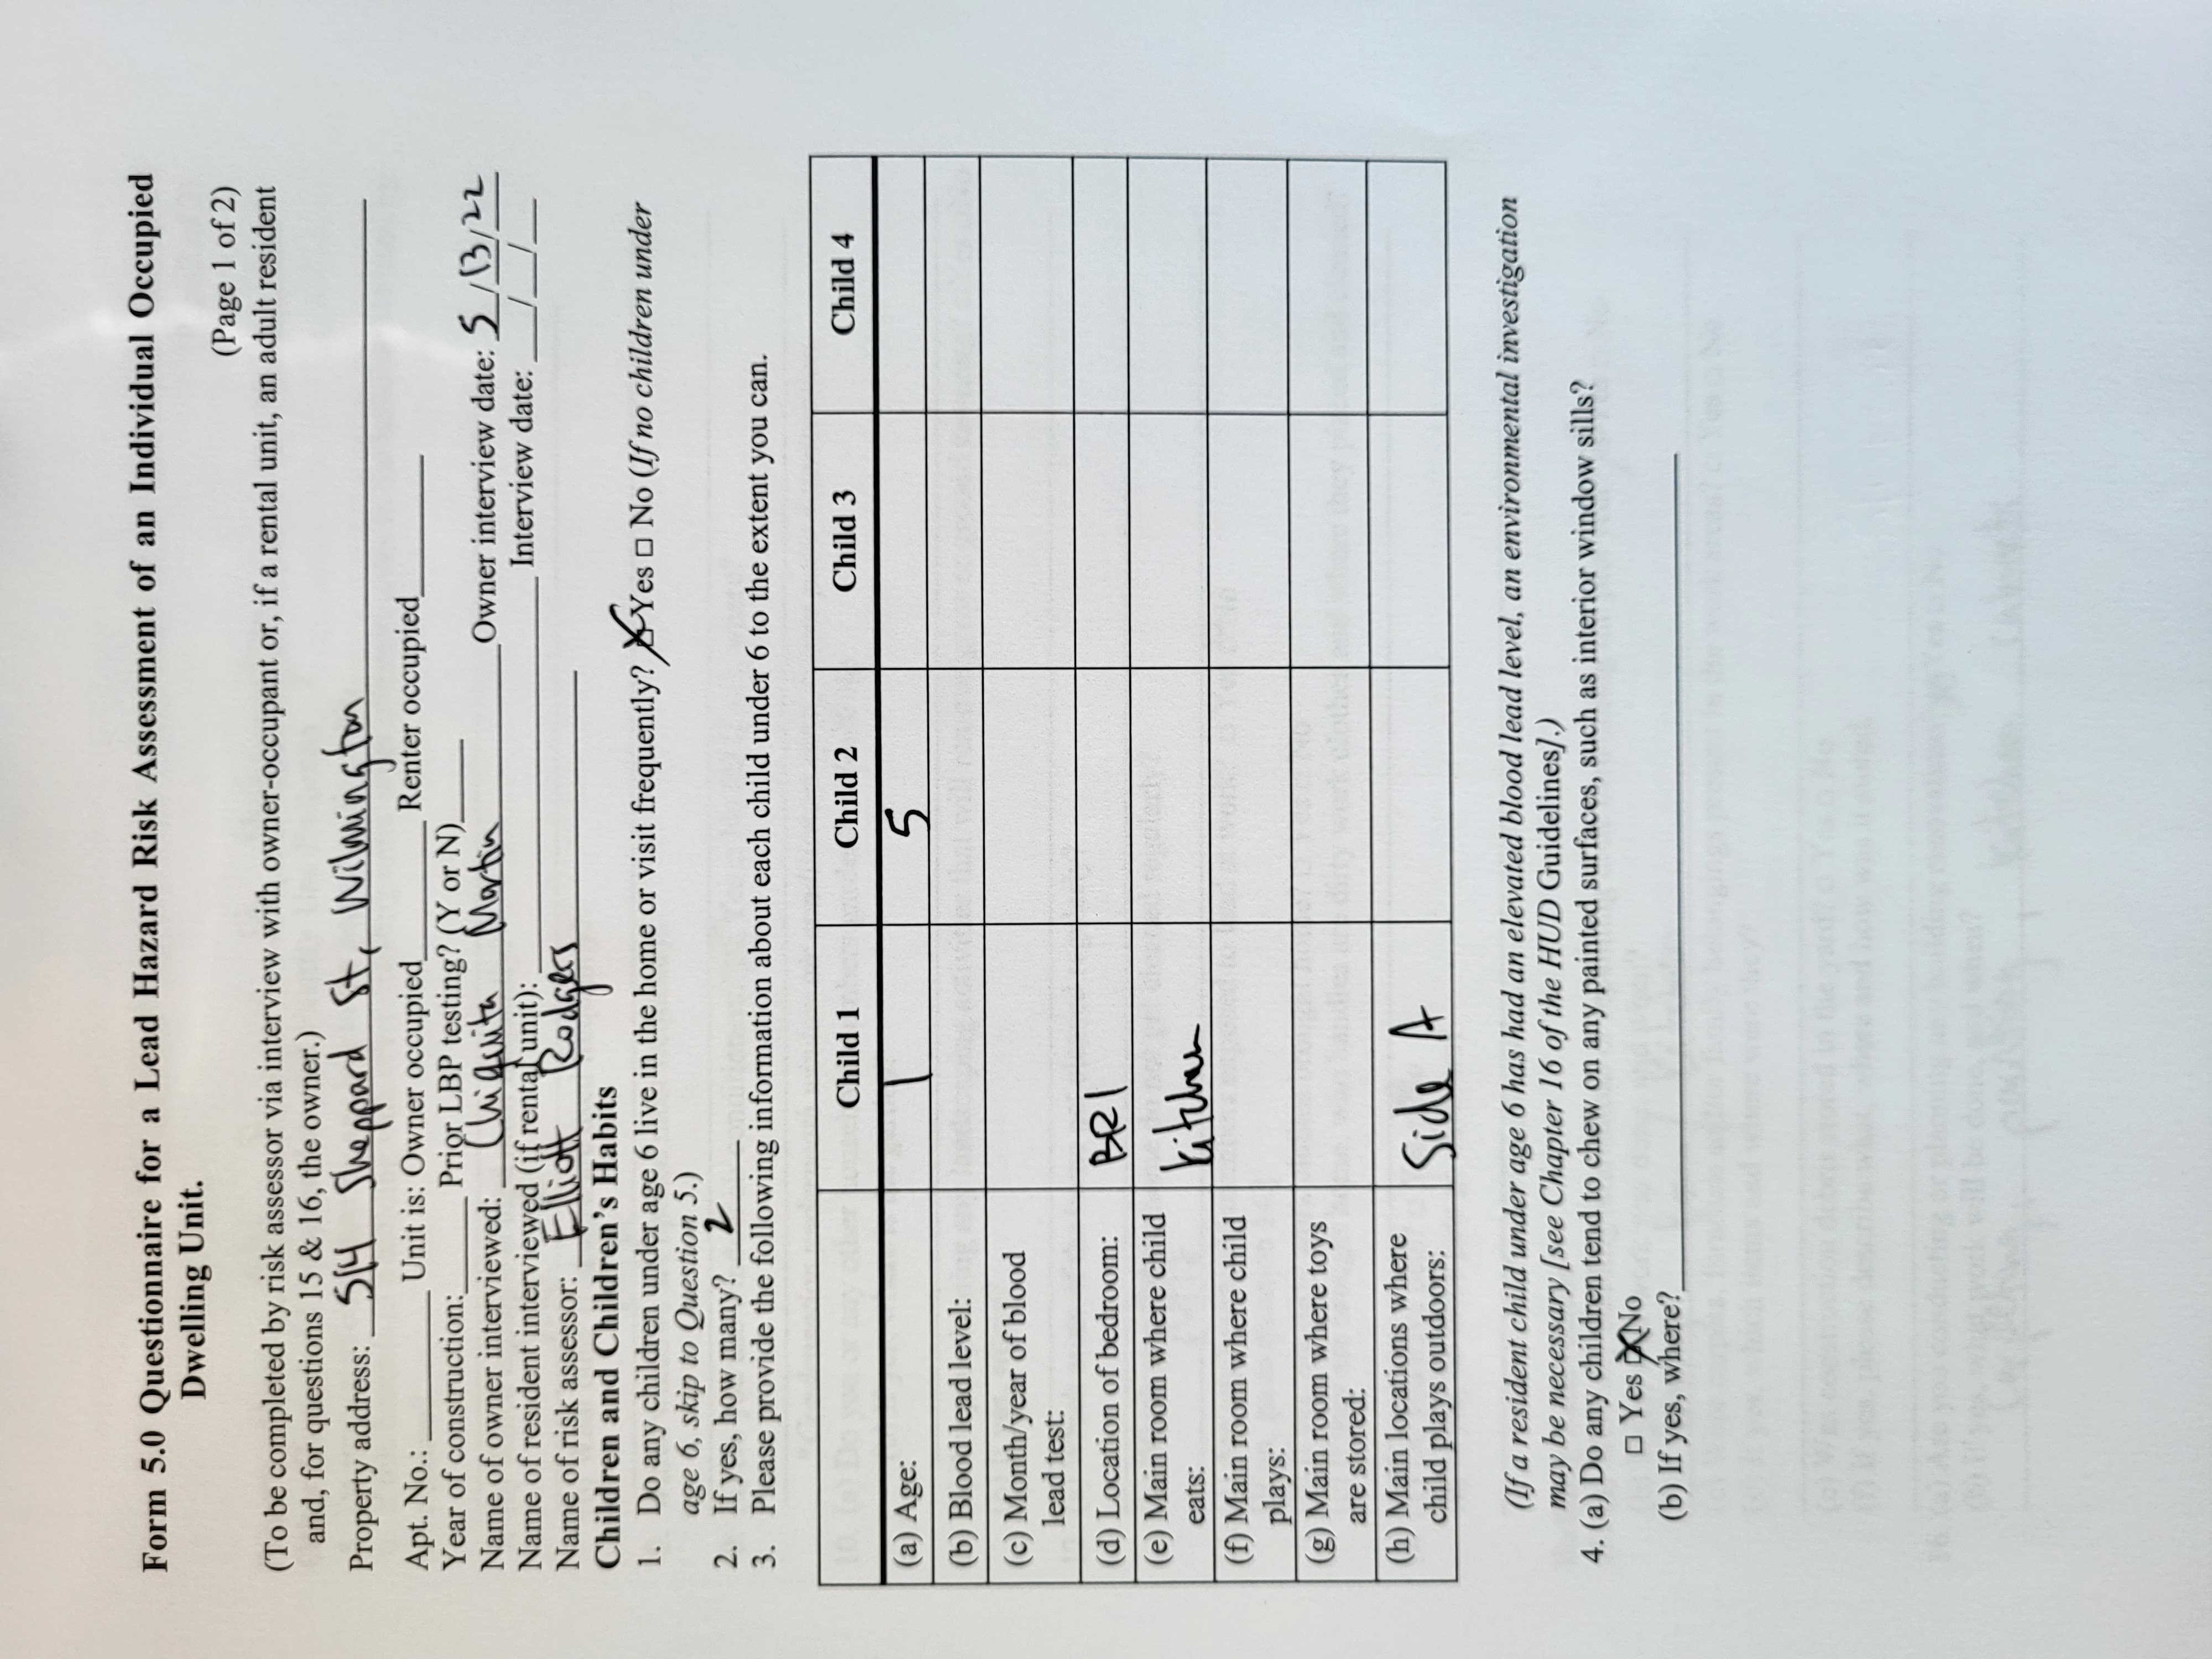 Form 5.0 Questionnaire for a Lead Hazard Risk Assessment of an Individual Occupied
Dwelling Unit.
(Page 1 of 2)
(To be completed by risk assessor via interview with owner-occupant or, if a rental unit, an adult resident
and, for questions 15 & 16, the owner.)
Property address: 514 Sheppard St, Wilmington
Apt. No.: ______ Unit is: Owner occupied______ Renter occupied______
Year of construction:______ Prior LBP testing? (Y or N)____
Name of owner interviewed: Chiquita Martin Owner interview date: 5/13/22
Name of resident interviewed (if rental unit): ______ Interview date: __/__/__
Name of risk assessor: Elliott Rodgers
Children and Children's Habits
1. Do any children under age 6 live in the home or visit frequently? ☒ Yes □ No (If no children under
age 6, skip to Question 5.)
2. If yes, how many? 2
3. Please provide the following information about each child under 6 to the extent you can.
Child 1 Child 2 Child 3 Child 4
(a) Age: 1 5
(b) Blood lead level:
(c) Month/year of blood
lead test:
(d) Location of bedroom: BR1
(e) Main room where child
eats: Kitchen
(f) Main room where child
plays:
(g) Main room where toys
are stored:
(h) Main locations where
child plays outdoors: Side A
(If a resident child under age 6 has had an elevated blood lead level, an environmental investigation
may be necessary [see Chapter 16 of the HUD Guidelines].)
4. (a) Do any children tend to chew on any painted surfaces, such as interior window sills?
□ Yes ☒ No
(b) If yes, where?______